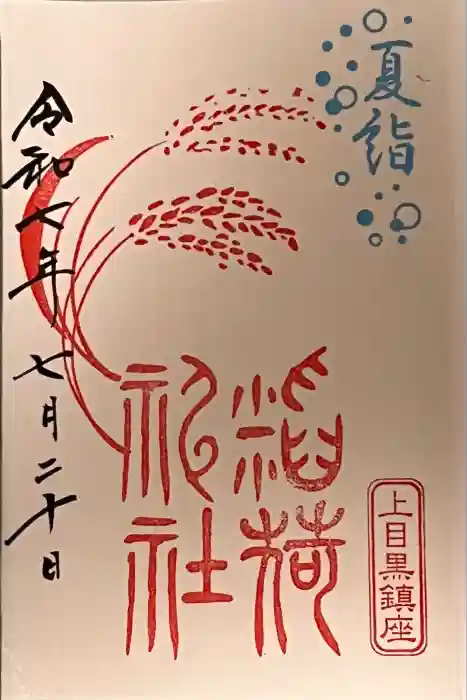 夏詣
稲荷
神社
上目黒鎮座
令和八年七月二十日